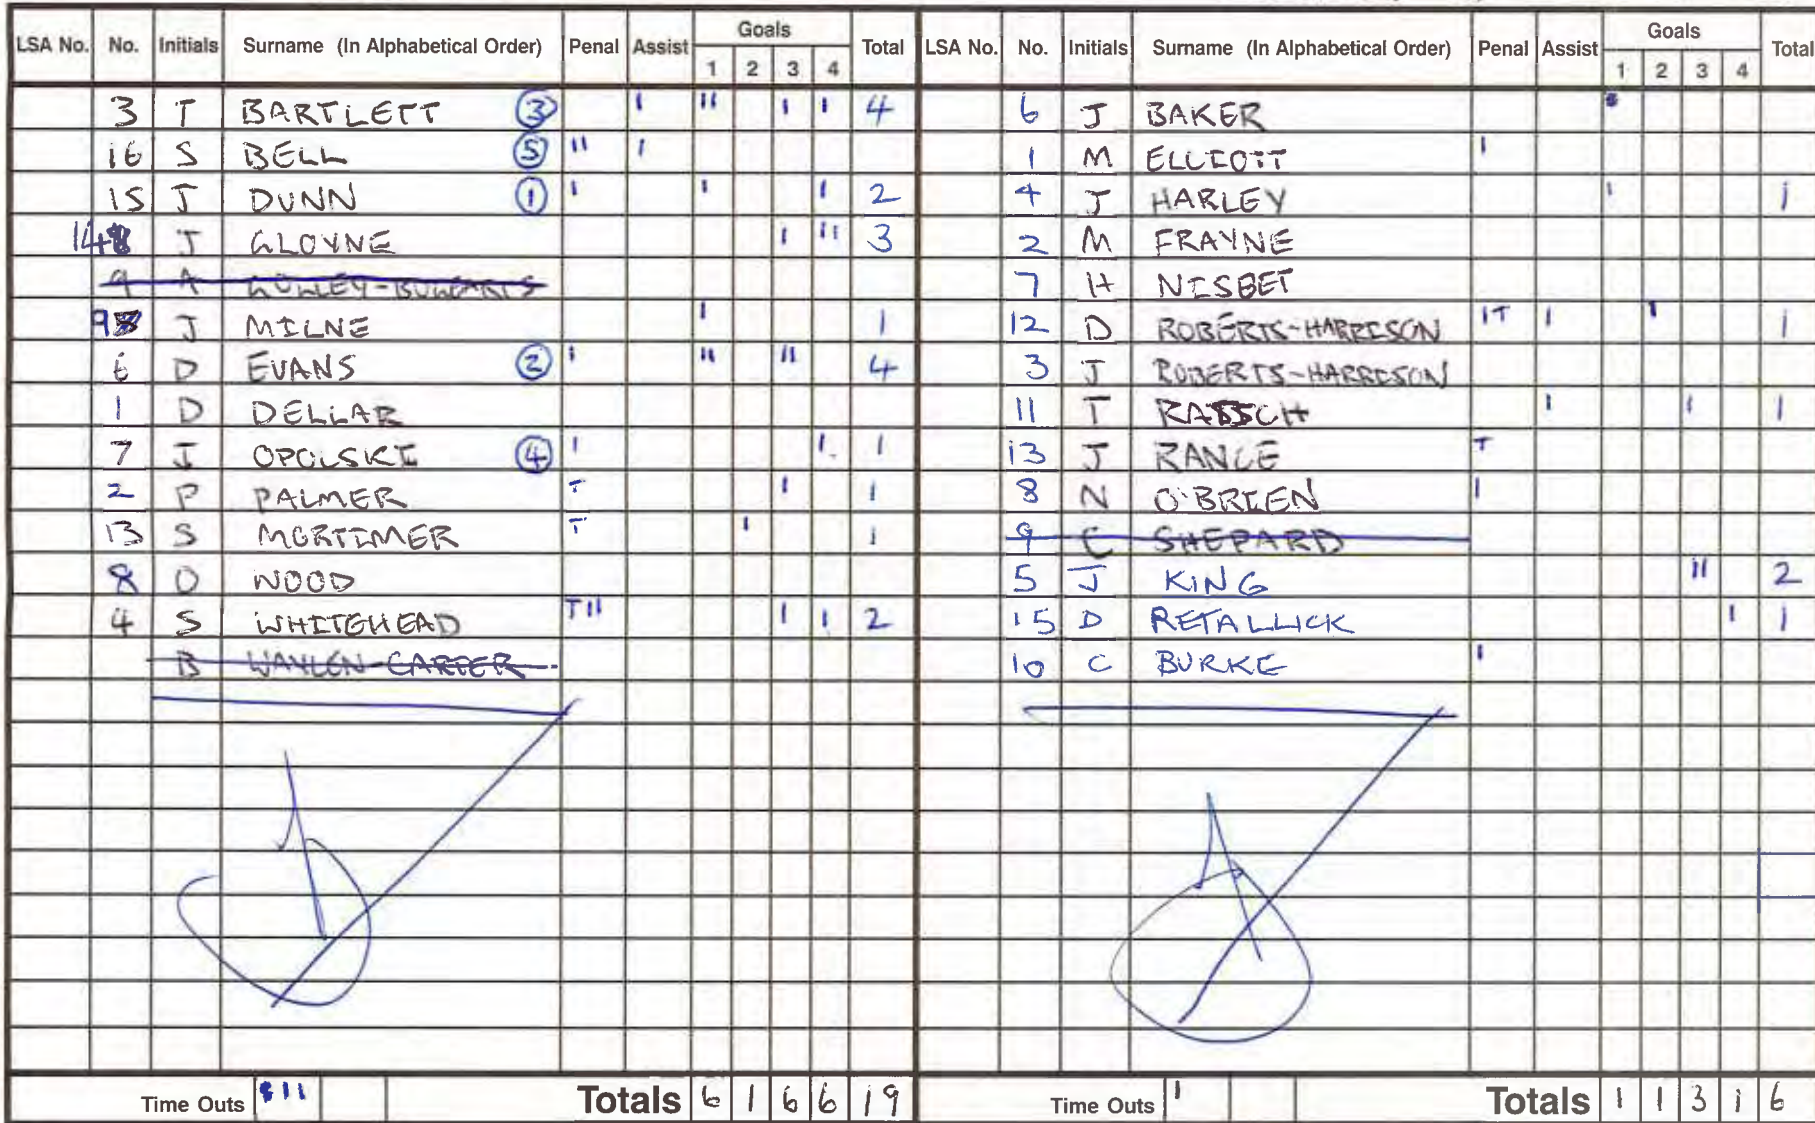 LSA No. No. Initials Surname (In Alphabetical Order) Penal Assist Goals 1 2 3 4 Total
3 T BARTLETT ③ I II I I 4
16 S BELL ⑤ II I
15 J DUNN ① I I I 2
14 J GLOYNE I II 3
9 A
9 J MILNE I 1
6 D EVANS ② I II II 4
1 D DELLAR
7 I OPOLSKI ④ I I 1
2 P PALMER T I 1
13 S MORTIMER T I 1
8 O WOOD
4 S WHITEHEAD TII I I 2
B WAYLEN-CARTER
Time Outs II Totals 6 1 6 6 19
LSA No. No. Initials Surname (In Alphabetical Order) Penal Assist Goals 1 2 3 4 Total
6 J BAKER
1 M ELLIOTT I
4 J HARLEY I 1
2 M FRAYNE
7 H NISBET
12 D ROBERTS-HARRISON IT I I 1
3 J ROBERTS-HARRISON
11 T I I 1
13 J RANCE T
8 N O'BRIEN I
9 C SHEPARD
5 J KING II 2
15 D RETALLICK I 1
10 C BURKE I
Time Outs I Totals 1 1 3 1 6